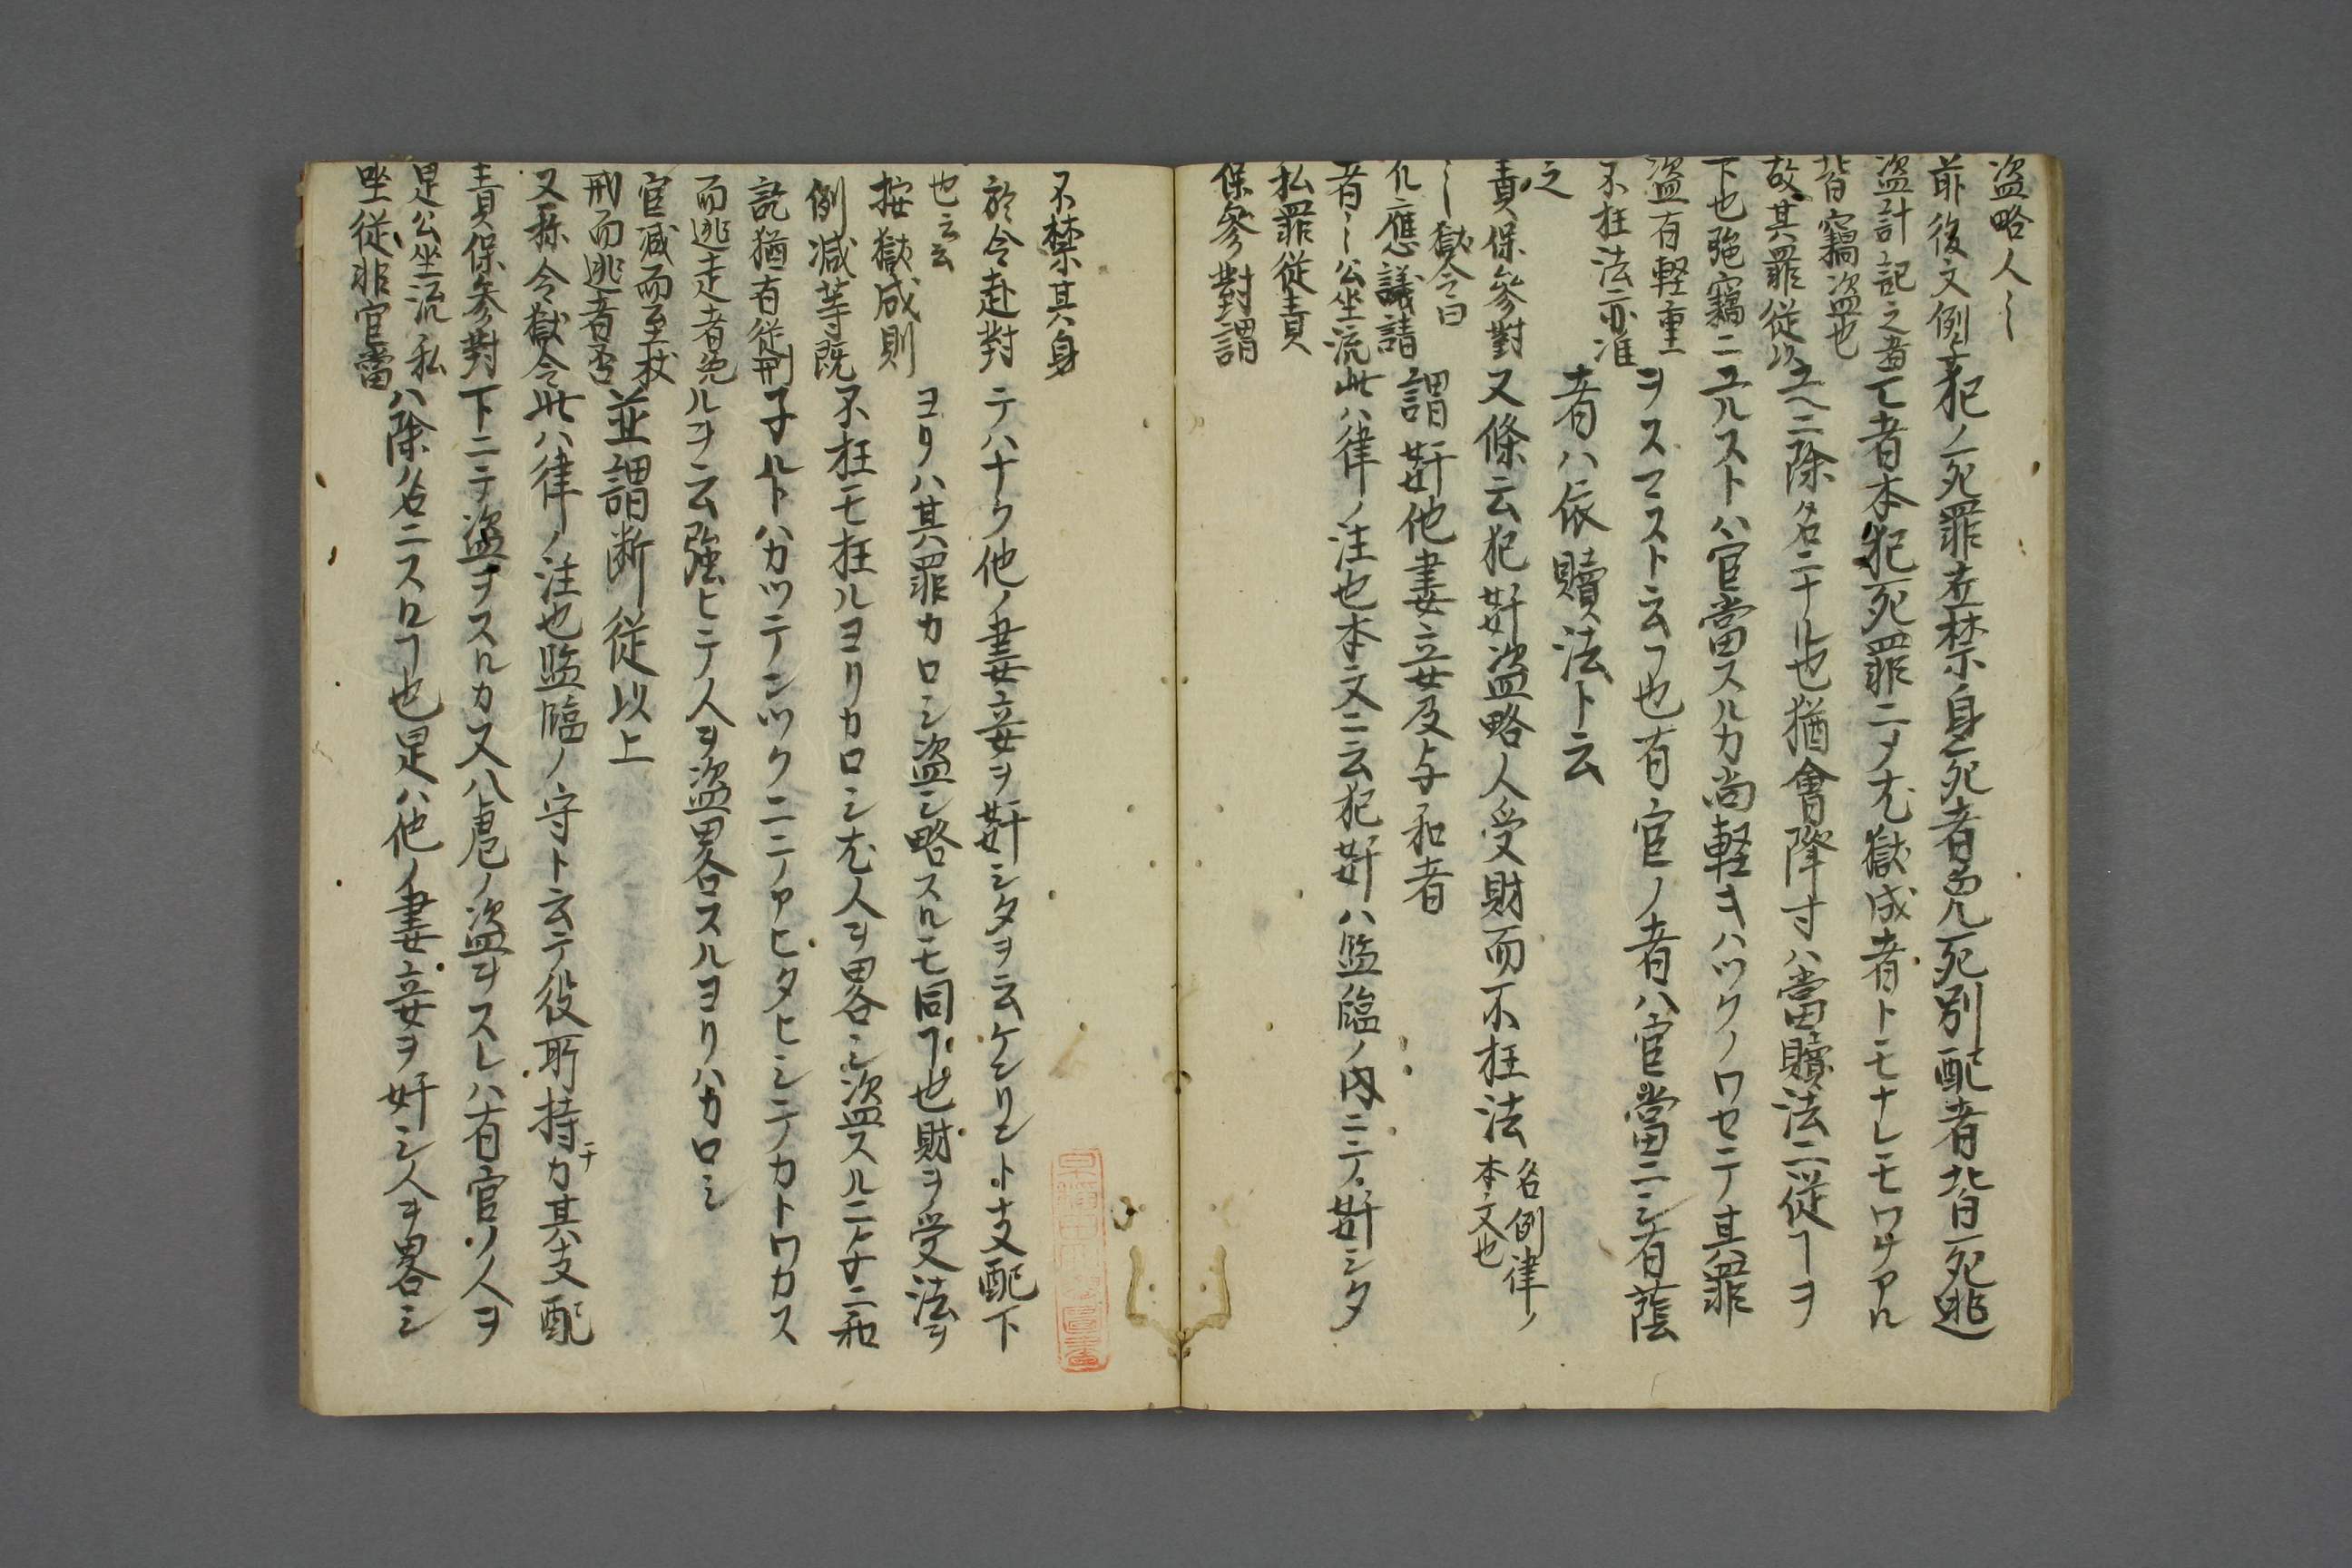 盗略人〻
前後文例ニ
盗計記之者
皆竊盗也
故其罪従以
下也強竊ニ
盗有軽重
不枉法亦准
之
責保参對
〻獄令曰
凡應議請
者〻公坐流
私罪従責
保参對謂
犯ノ死罪若禁身死者免死別配者皆死逃
亡者本犯死罪ニメ尤獄成者トモナレモワサアル
ユヘニ除名ニナル也猶會降寸ハ當贖法ニ従ヿヲ
ユルストハ官當スルカ尚軽キハツクノワセテ其罪
ヲスマスト云ヿ也有官ノ者ハ官當ニシ有蔭
者ハ依贖法ト云
又條云犯奸盗略人受財而不枉法 名例律ノ
本文也
謂奸他妻妾及与和者
此ハ律ノ注也本文ニ云犯奸ハ監臨ノ内ニテ奸シタ
不禁其身
於令赴對
也云云
按獄成則
例減等既
訖猶有従刑
而逃走者免
官減而至杖
刑而逃者否
又称令獄令
責保参對
是公坐流私
坐従非官當
テハナク他ノ妻妾ヲ奸シタヲ云ケンリント支配下
ヨリハ其罪カロシ盗シ略スルモ同ヿ也財ヲ受法ヲ
不枉モ枉ルヨリカロシ尤人ヲ畧シ盗スルニト子ニ和
子ルトハカツテンツクニニノアヒタヒシテカトワカス
ルヲ云強ヒテ人ヲ盗畧スルヨリハカロシ
並謂断従以上
此ハ律ノ注也監臨ノ守ト云テ役所持ナカ其支配
下ニテ盗ヲスルカ又ハ庖ノ盗ヲスレハ有官ノ人ヲ
ハ除名ニスルヿ也是ハ他ノ妻妾ヲ奸シ人ヲ畧シ